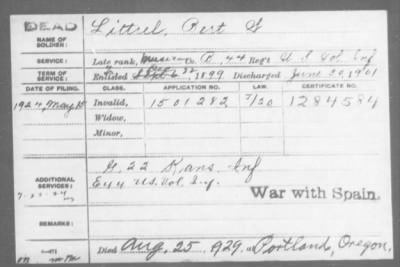 DEAD
NAME OF SOLDIER: Littrel, Bert G
SERVICE: Late rank, Musician Co. B, 44 Reg't U. S. Vol. Inf
TERM OF SERVICE: Enlisted 1899 Discharged June 30, 1901
DATE OF FILING. CLASS. APPLICATION NO. LAW. CERTIFICATE NO.
1924, May Invalid, 1501282 7/20 1284584
Widow,
Minor,
ADDITIONAL SERVICES: G. 22 Kans. Inf
E 44 U.S. Vol. Inf.
War with Spain.
REMARKS:
Died Aug. 25, 1929, at Portland, Oregon,